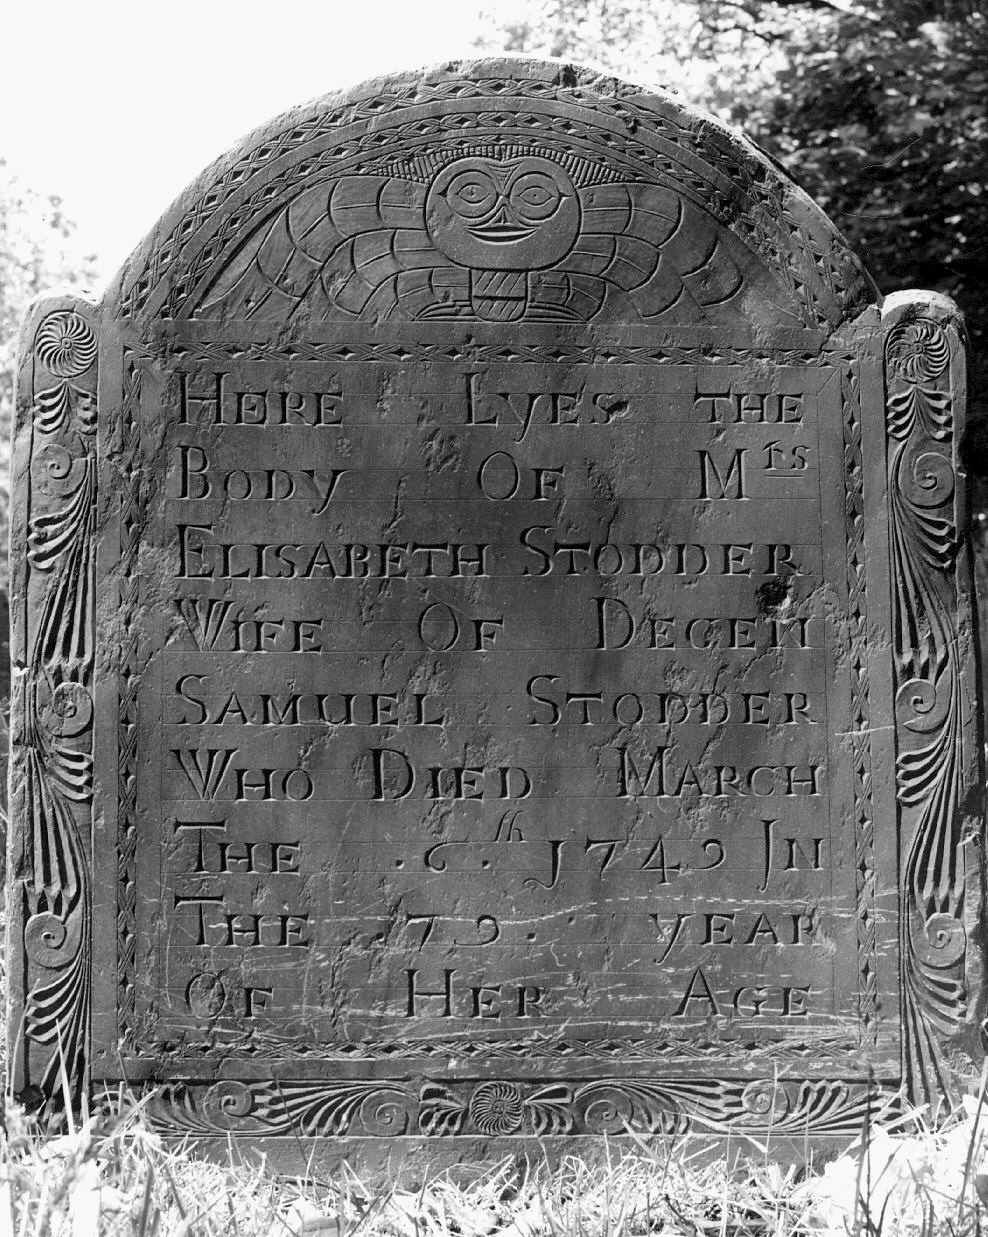 HERE LYES THE
BODY OF Mrs
ELISABETH STODDER
WIFE OF DECEN
SAMUEL STODDER
WHO DIED MARCH
THE . 6 . th 1742 IN
THE 72. YEAR
OF HER AGE